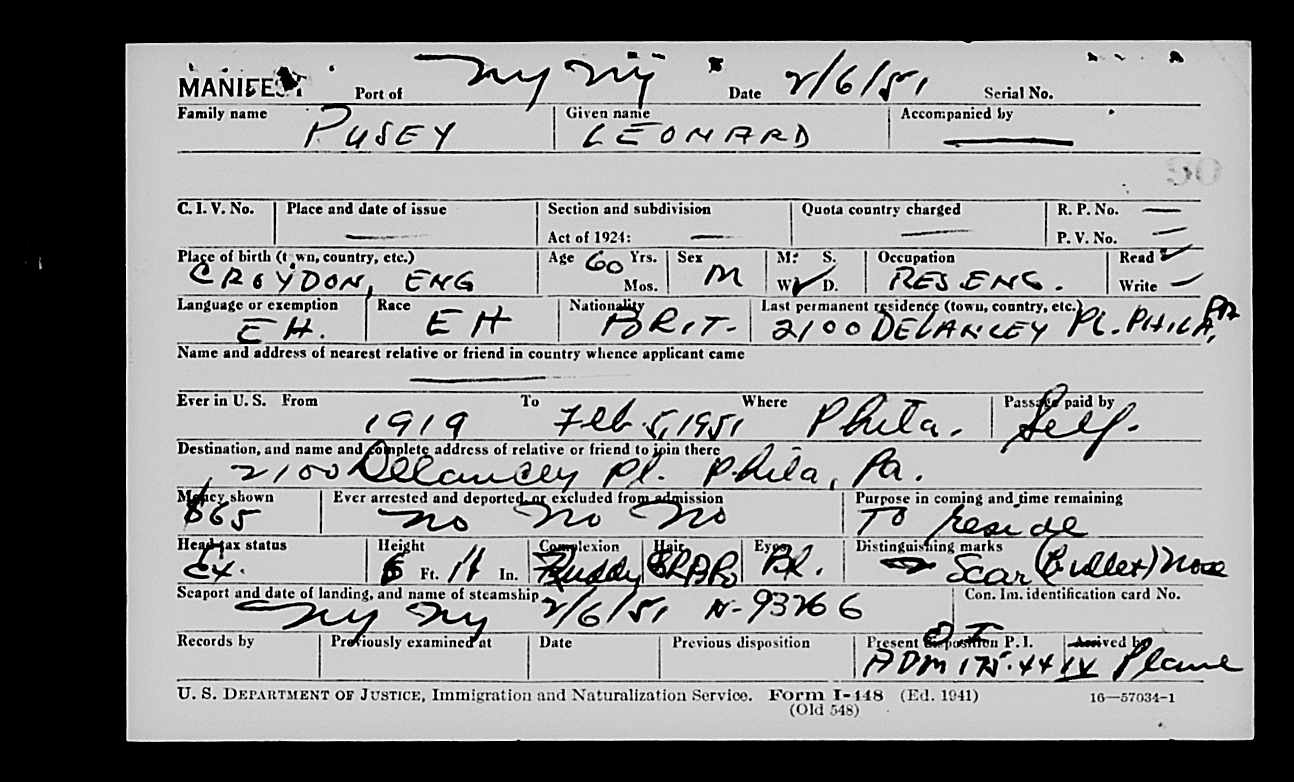 MANIFEST Port of NY NY Date 2/6/51 Serial No.
Family name PUSEY Given name LEONARD Accompanied by —
50
C. I. V. No. Place and date of issue — Section and subdivision Quota country charged — R. P. No. —
Act of 1924: — P. V. No. —
Place of birth (town, country, etc.) CROYDON, ENG Age 60 Yrs. Mos. Sex M M. S. W ✓ D. Occupation RES. ENG. Read ✓ Write —
Language or exemption EH. Race EH Nationality BRIT- Last permanent residence (town, country, etc.) 2100 DELANCEY PL. PHILA, PA
Name and address of nearest relative or friend in country whence applicant came
—
Ever in U. S. From 1919 To Feb 5, 1951 Where Phila. Passage paid by Self.
Destination, and name and complete address of relative or friend to join there
2100 Delancey Pl. Phila, Pa.
Money shown $65 Ever arrested and deported, or excluded from admission no no no Purpose in coming and time remaining To reside
Head-tax status Ex. Height Ft. 11 In. Complexion Ruddy Hair Eyes Bl. Distinguishing marks Scar (Bullet) Nose
Seaport and date of landing, and name of steamship NY NY 2/6/51 N-93266 Con. Im. identification card No.
Records by Previously examined at Date Previous disposition Present disposition P. I. ADM 175.44 Arrived by Plane
U. S. DEPARTMENT OF JUSTICE, Immigration and Naturalization Service. Form I-448 (Ed. 1941) 16—57034-1
(Old 548)